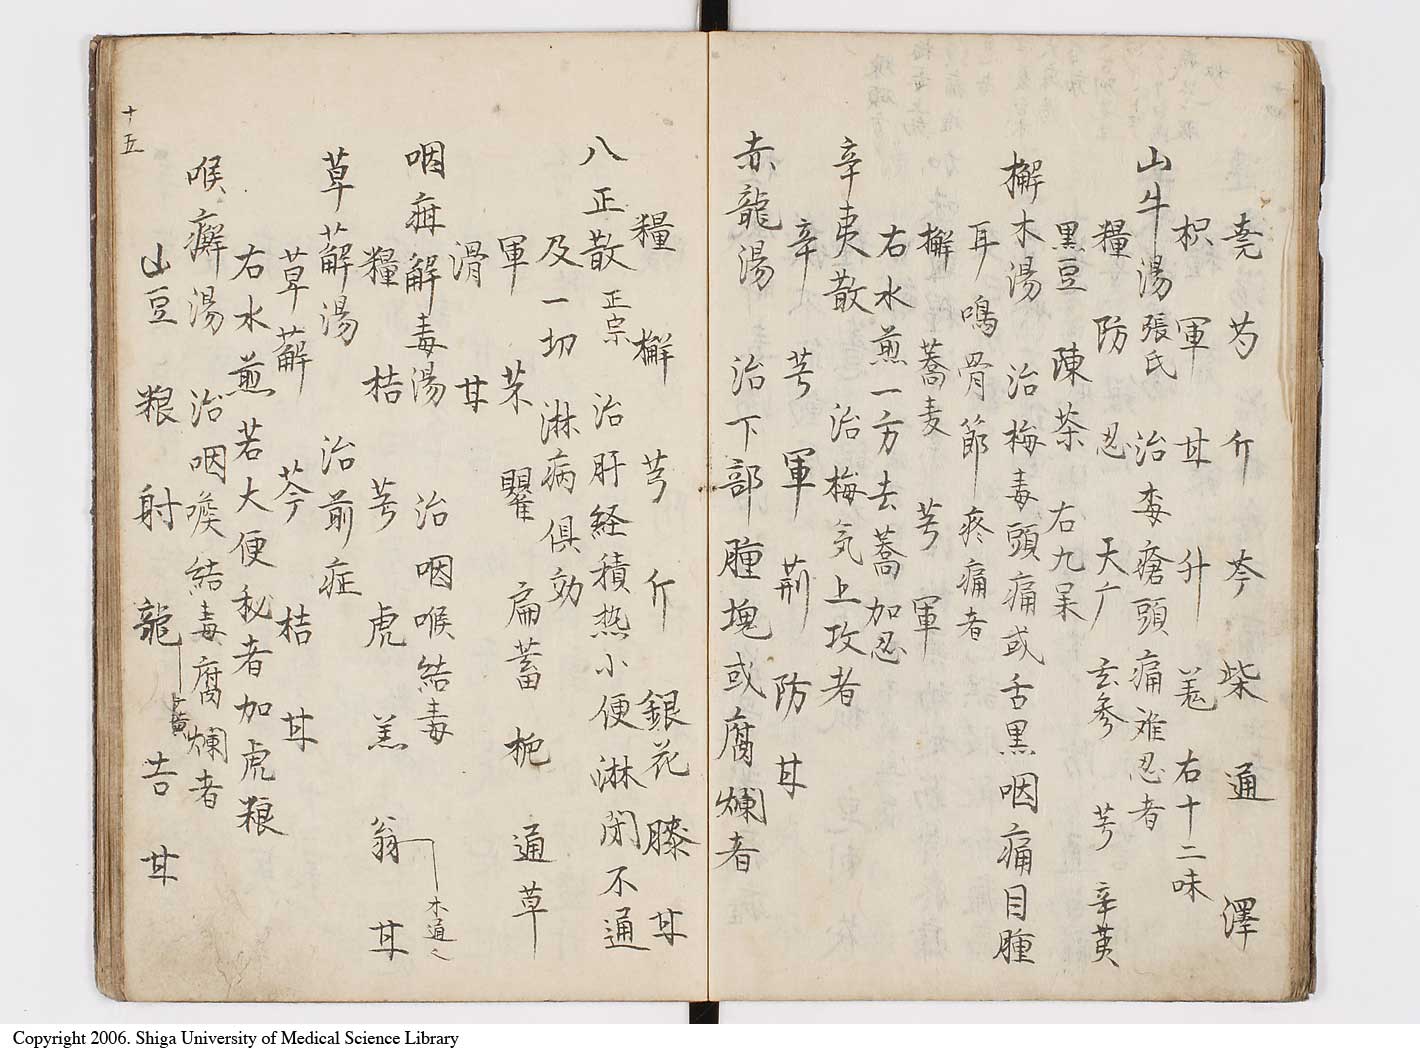 荛 芍 斤 芩 柴 通 澤
枳 軍 甘 升 羗 右十二味
山牛湯 張氏 治毒瘡頭痛难忍者
糧 防 忍 天广 玄参 芎 辛荑
黒豆 陳茶 右九呆
檞木湯 治梅毒頭痛或舌黒咽痛目腫
耳鳴骨節疼痛者
檞 蕎麦 芎 軍
右水煎一方去蕎加忍
辛夷散 治梅気上攻者
辛 芎 軍 荊 防 甘
赤龍湯 治下部腫塊或腐爛者
糧 檞 芎 斤 銀花 膝 甘
八正散 正宗 治肝経積热小便淋闭不通
及一切淋病俱効
軍 苶 瞿 扁蓄 栀 通草
滑 甘
咽疳解毒湯 治咽喉結毒
糧 桔 芎 虎 羔 翁 甘
木通
草薢湯 治前症
草薢 芩 桔 甘
右水煎若大便秘者加虎粮
喉癬湯 治咽喉結毒腐爛者
山豆 粮 射 龍 吉 甘
十五
Copyright 2006. Shiga University of Medical Science Library